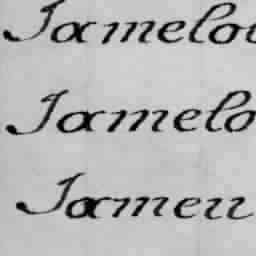 Jamelou
Jamelo
Jameu